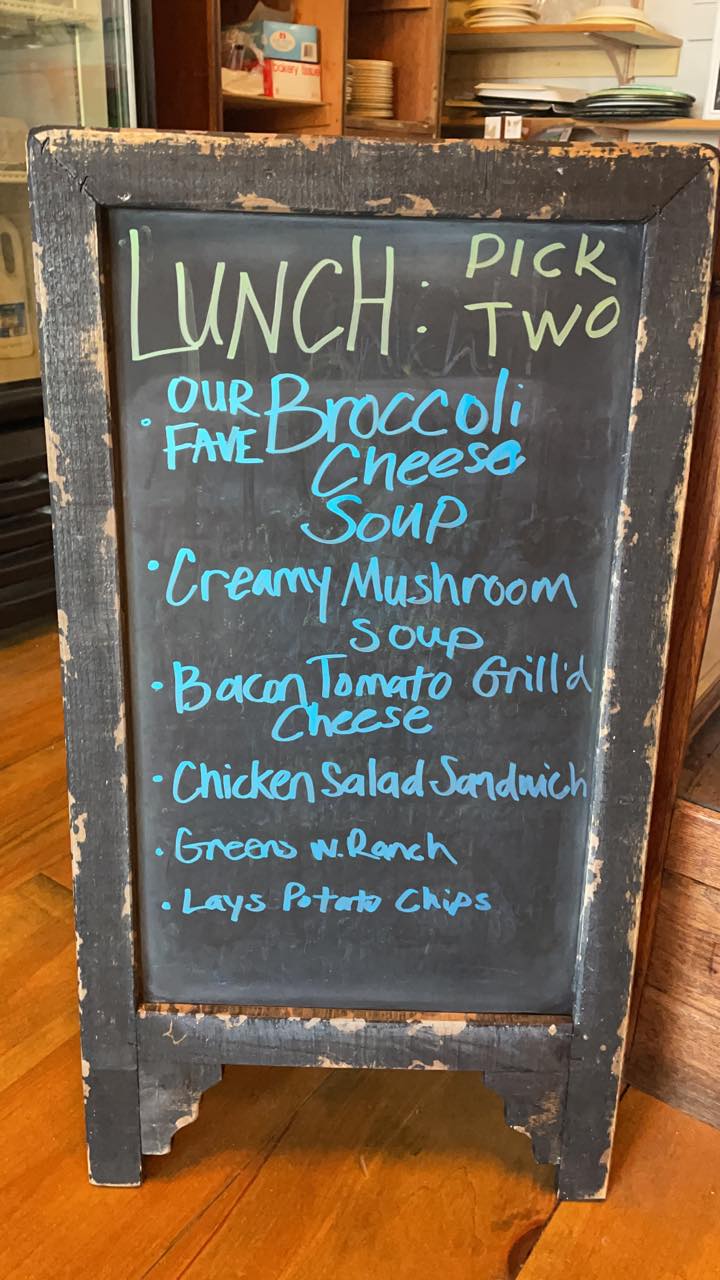 bakery tissue
LUNCH: PICK
TWO
· OUR FAVE Broccoli
Cheese
Soup
· Creamy Mushroom
Soup
· Bacon Tomato Grill'd
Cheese
· Chicken Salad Sandwich
· Greens w. Ranch
· Lays Potato Chips